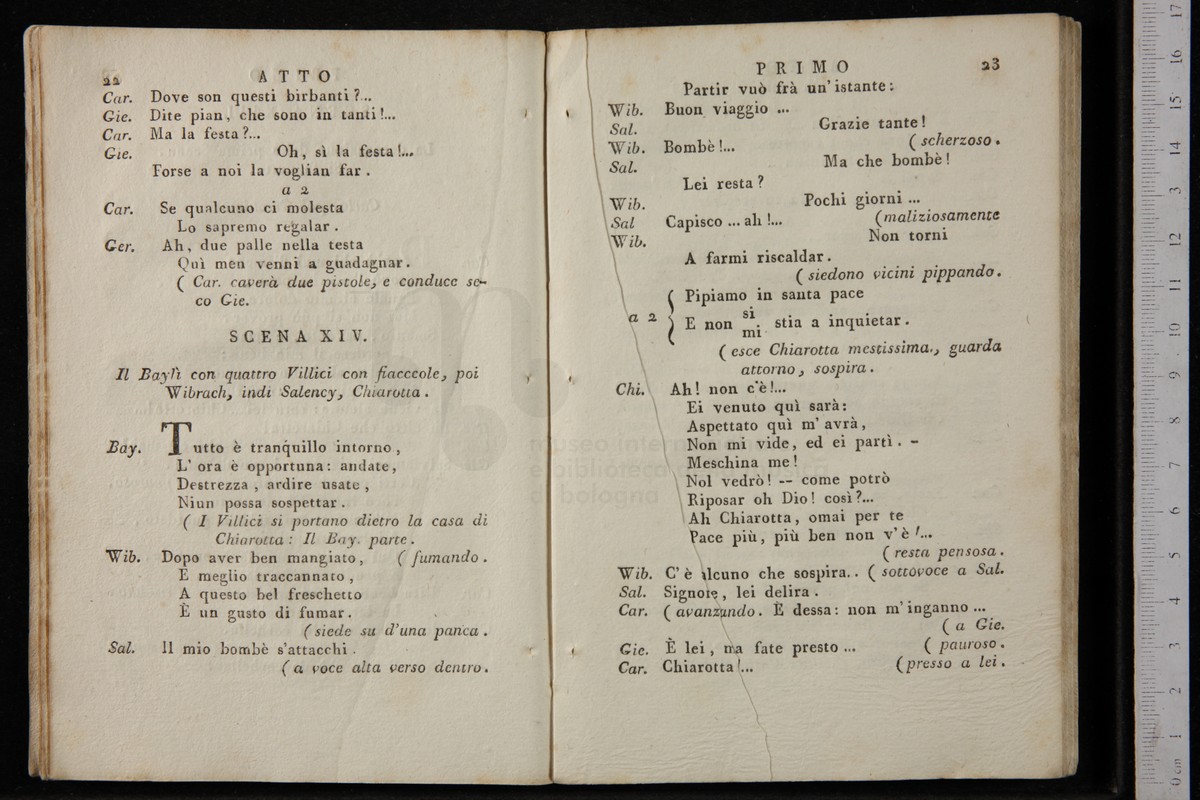 22 ATTO
Car. Dove son questi birbanti?...
Gie. Dite pian, che sono in tanti!...
Car. Ma la festa?...
Gie. Oh, sì la festa!...
Forse a noi la voglian far.
a 2
Car. Se qualcuno ci molesta
Lo sapremo regalar.
Ger. Ah, due palle nella testa
Quì men venni a guadagnar.
( Car. caverà due pistole, e conduce se-
co Gie.
SCENA XIV.
Il Baylì con quattro Villici con fiacccole, poi
Wibrach, indi Salency, Chiarotta.
Bay. Tutto è tranquillo intorno,
L' ora è opportuna: andate,
Destrezza, ardire usate,
Niun possa sospettar.
( I Villici si portano dietro la casa di
Chiarotta: Il Bay. parte.
Wib. Dopo aver ben mangiato, ( fumando.
E meglio traccannato,
A questo bel freschetto
È un gusto di fumar.
( siede su d'una panca.
Sal. Il mio bombè s'attacchi.
( a voce alta verso dentro.
PRIMO 23
Partir vuò frà un' istante:
Wib. Buon viaggio ...
Sal. Grazie tante!
Wib. Bombè!... ( scherzoso.
Sal. Ma che bombè!
Lei resta?
Wib. Pochi giorni ...
Sal Capisco ... ah!... (maliziosamente
Wib. Non torni
A farmi riscaldar.
( siedono vicini pippando.
a 2 { Pipiamo in santa pace
E non si mi stia a inquietar.
( esce Chiarotta mestissima., guarda
attorno, sospira.
Chi. Ah! non c'è!...
Ei venuto quì sarà:
Aspettato quì m' avrà,
Non mi vide, ed ei partì. -
Meschina me!
Nol vedrò! -- come potrò
Riposar oh Dio! così?...
Ah Chiarotta, omai per te
Pace più, più ben non v' è!...
( resta pensosa.
Wib. C' è alcuno che sospira.. ( sottovoce a Sal.
Sal. Signore, lei delira.
Car. ( avanzando. È dessa: non m' inganno ...
( a Gie.
Gie. È lei, ma fate presto ... ( pauroso.
Car. Chiarotta!... (presso a lei.
museo internazionale
e biblioteca della musica
di bologna
0 cm 1 2 3 4 5 6 7 8 9 10 11 12 13 14 15 16 17